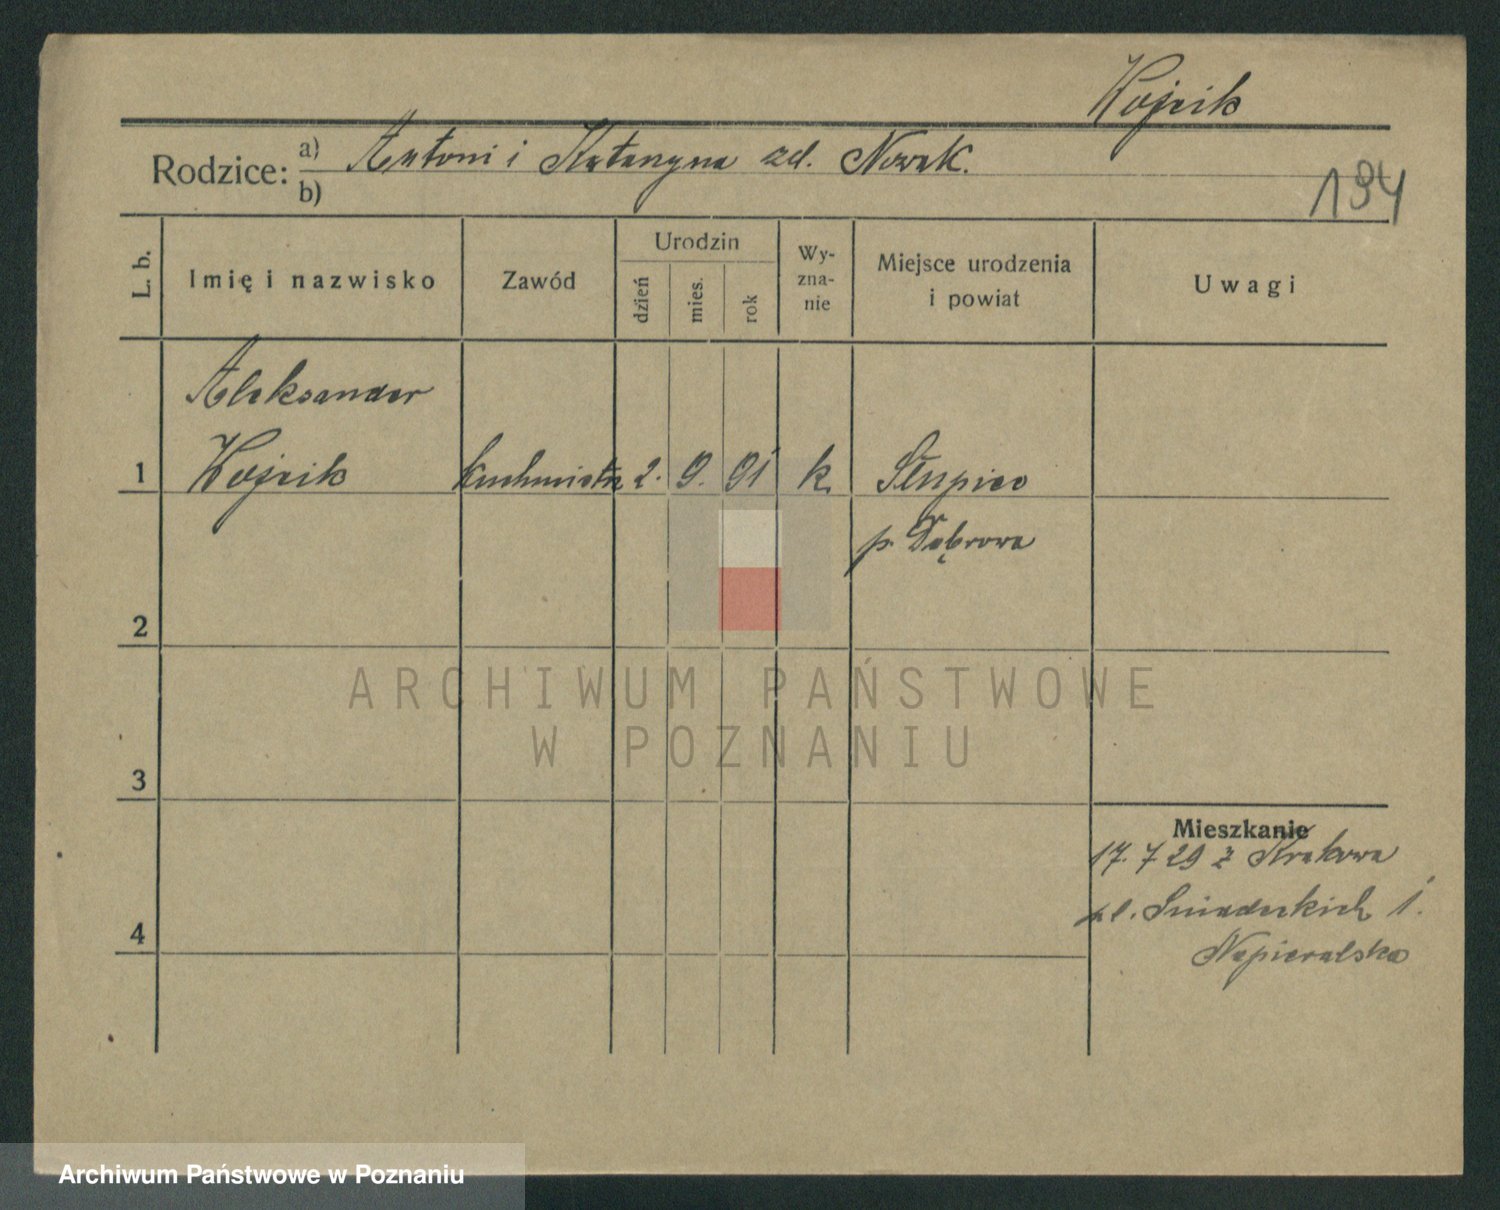 Wojcik
Rodzice: a) Antoni i Katarzyna zd. Nowak.
b)
194
L. b.
Imię i nazwisko
Zawód
Urodzin
dzień
mies.
rok
Wy-
zna-
nie
Miejsce urodzenia
i powiat
Uwagi
Aleksander
1 Wojcik kuchmistrz 2. 9. 91 k. Słupiec
p. Dąbrowa
2
ARCHIWUM PAŃSTWOWE
W POZNANIU
3
Mieszkanie
17. 7 29 z Krakowa
pl. Sniadeckich 1.
4
Napieralska
Archiwum Państwowe w Poznaniu